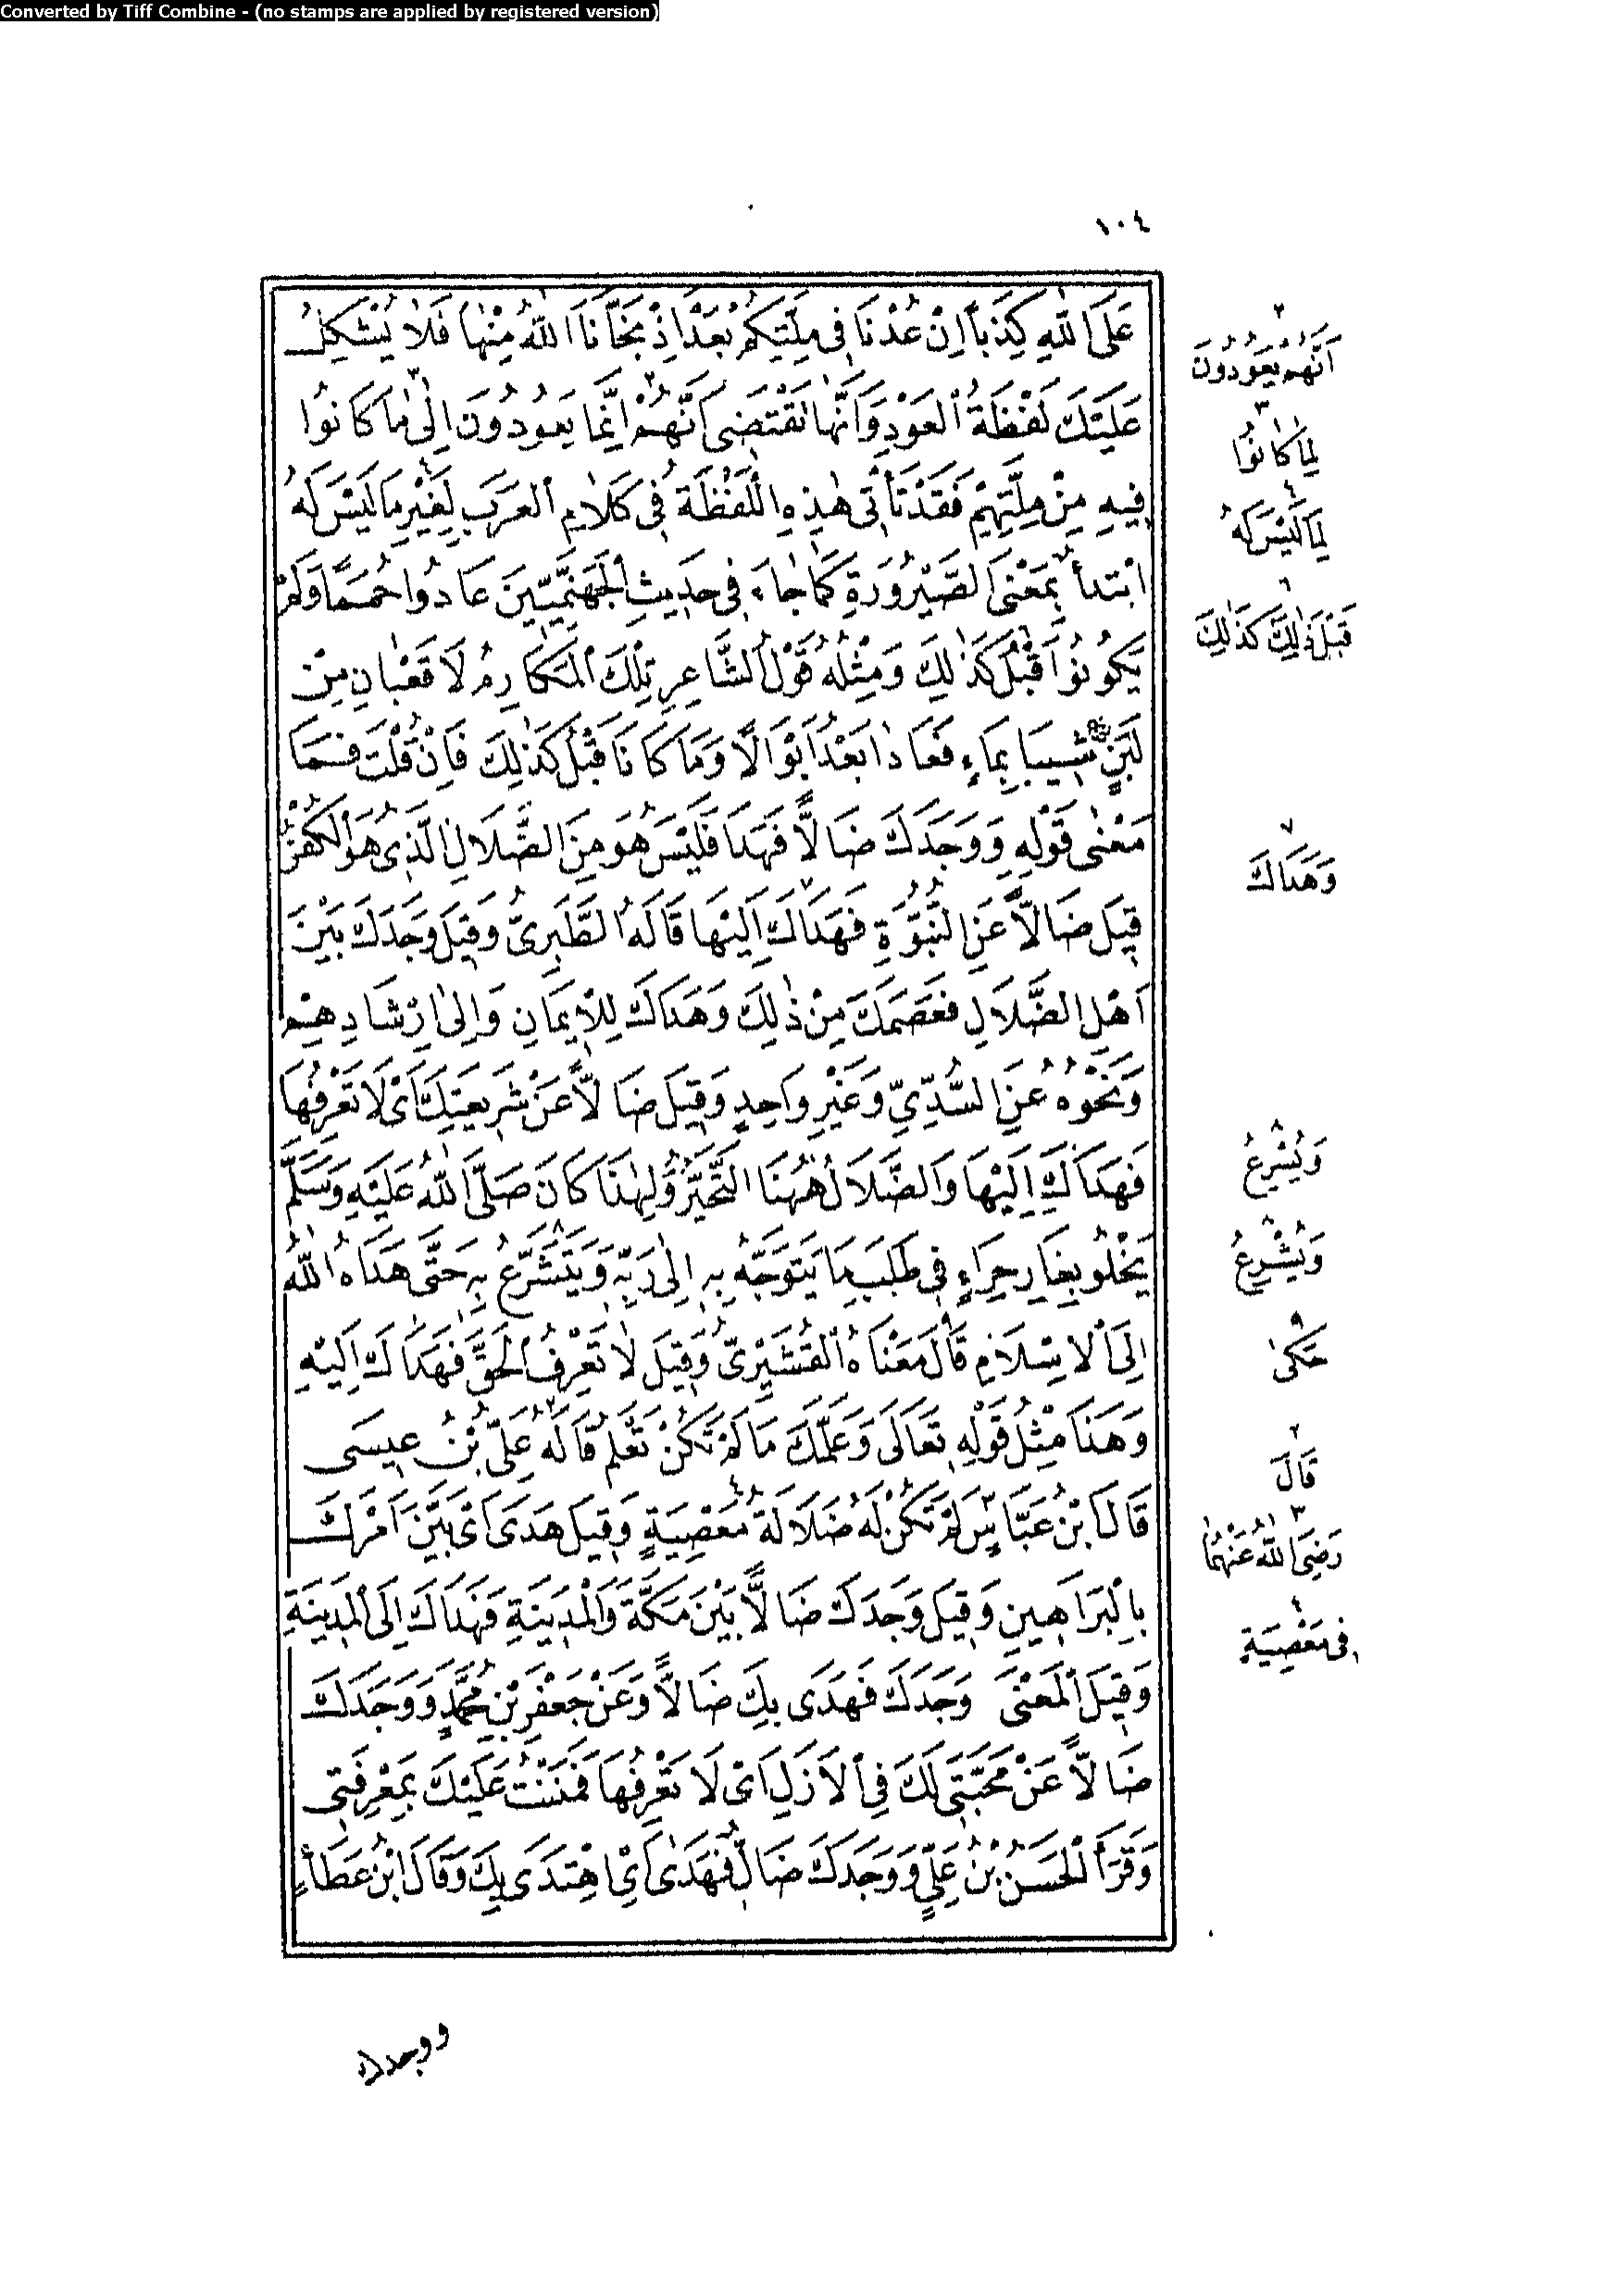 Converted by Tiff Combine - (no stamps are applied by registered version)
١٠٤
عَلَى اللهِ كَذِبًا اِنْ عُدْنَا فِى مِلَّتِكُمْ بَعْدَ اِذْ نَجَّانَا اللهُ مِنْهَا فَلَا يُشْكِلُ
عَلَيْكَ لَفْظَةُ الْعَوْدِ وَاَنَّهَا تَقْتَضِى اَنَّهُمْ اِنَّمَا يَعُودُونَ اِلٰى مَا كَانُوا
فِيهِ مِنْ مِلَّتِهِمْ فَقَدْ تَأْتِى هٰذِهِ اللَّفْظَةُ فِى كَلَامِ الْعَرَبِ لِغَيْرِ مَا لَيْسَ لَهُ
ابْتِدَاءٌ بِمَعْنَى الصَّيْرُورَةِ كَمَا جَاءَ فِى حَدِيثِ الْجَهَنَّمِيِّينَ عَادُوا حُمَمًا وَلَمْ
يَكُونُوا قَبْلُ كَذٰلِكَ وَمِثْلُهُ قَوْلُ الشَّاعِرِ تِلْكَ الْمَكَارِمُ لَا قَعْبَانِ مِنْ
لَبَنٍ شِيبَا بِمَاءٍ فَعَادَا بَعْدُ اَبْوَالًا وَمَا كَانَا قَبْلُ كَذٰلِكَ فَاِنْ قُلْتَ فَمَا
مَعْنٰى قَوْلِهِ وَوَجَدَكَ ضَالًّا فَهَدَا فَلَيْسَ هُوَ مِنَ الضَّلَالِ الَّذِى هُوَ الْكُفْرُ
قِيلَ ضَالًّا عَنِ النُّبُوَّةِ فَهَدَاكَ اِلَيْهَا قَالَهُ الطَّبَرِىُّ وَقِيلَ وَجَدَكَ بَيْنَ
اَهْلِ الضَّلَالِ فَعَصَمَكَ مِنْ ذٰلِكَ وَهَدَاكَ لِلْاِيمَانِ وَاِلٰى اِرْشَادِهِمْ
وَنَحْوُهُ عَنِ السُّدِّيِّ وَغَيْرِ وَاحِدٍ وَقِيلَ ضَالًّا عَنْ شَرِيعَتِكَ اَىْ لَا تَعْرِفُهَا
فَهَدَاكَ اِلَيْهَا وَالضَّلَالُ هٰهُنَا التَّحَيُّرُ وَلِهٰذَا كَانَ صَلَّى اللهُ عَلَيْهِ وَسَلَّمَ
يَخْلُو بِغَارِ حِرَاءٍ فِى طَلَبِ مَا يَتَوَجَّهُ بِهِ اِلٰى رَبِّهِ وَيَتَشَرَّعُ بِهِ حَتَّى هَدَاهُ اللهُ
اِلَى الْاِسْلَامِ قَالَ مَعْنَاهُ الْقُشَيْرِىُّ وَقِيلَ لَا تَعْرِفُ الْحَقَّ فَهَدَاكَ اِلَيْهِ
وَهَذَا مِثْلُ قَوْلِهِ تَعَالَى وَعَلَّمَكَ مَا لَمْ تَكُنْ تَعْلَمُ قَالَهُ عَلِىُّ بْنُ عِيسَى
قَالَ ابْنُ عَبَّاسٍ لَمْ تَكُنْ لَهُ ضَلَالَةُ مَعْصِيَةٍ وَقِيلَ هَدَى اَىْ بَيَّنَ اَمْرَكَ
بِالْبَرَاهِينِ وَقِيلَ وَجَدَكَ ضَالًّا بَيْنَ مَكَّةَ وَالْمَدِينَةِ فَهَدَاكَ اِلَى الْمَدِينَةِ
وَقِيلَ الْمَعْنَى وَجَدَكَ فَهَدَى بِكَ ضَالًّا وَعَنْ جَعْفَرِ بْنِ مُحَمَّدٍ وَوَجَدَكَ
ضَالًّا عَنْ مَحَبَّتِى لَكَ فِى الْاَزَلِ اَىْ لَا تَعْرِفُهَا فَمَنَنْتُ عَلَيْكَ بِمَعْرِفَتِى
وَقَرَأَ الْحَسَنُ بْنُ عَلِيٍّ وَوَجَدَكَ ضَالٌّ فَهَدٰى اَىِ اهْتَدَى بِكَ وَقَالَ ابْنُ عَطَاءٍ
٢
اَنَّهُمْ يَعُودُونَ
٣
لِمَا كَانُوا
٤
لِمَا لَيْسَ لَهُ
٦
قَبْلَ ذٰلِكَ كَذٰلِكَ
٧
وَهَدَاكَ
٨
وَيُشْرِعُ
٨
وَيُشْرِعُ
٩
حَكٰى
٢
قَالَ
٣
رَضِىَ اللهُ عَنْهُمَا
٤
فِى مَعْصِيَةٍ
ووجدك